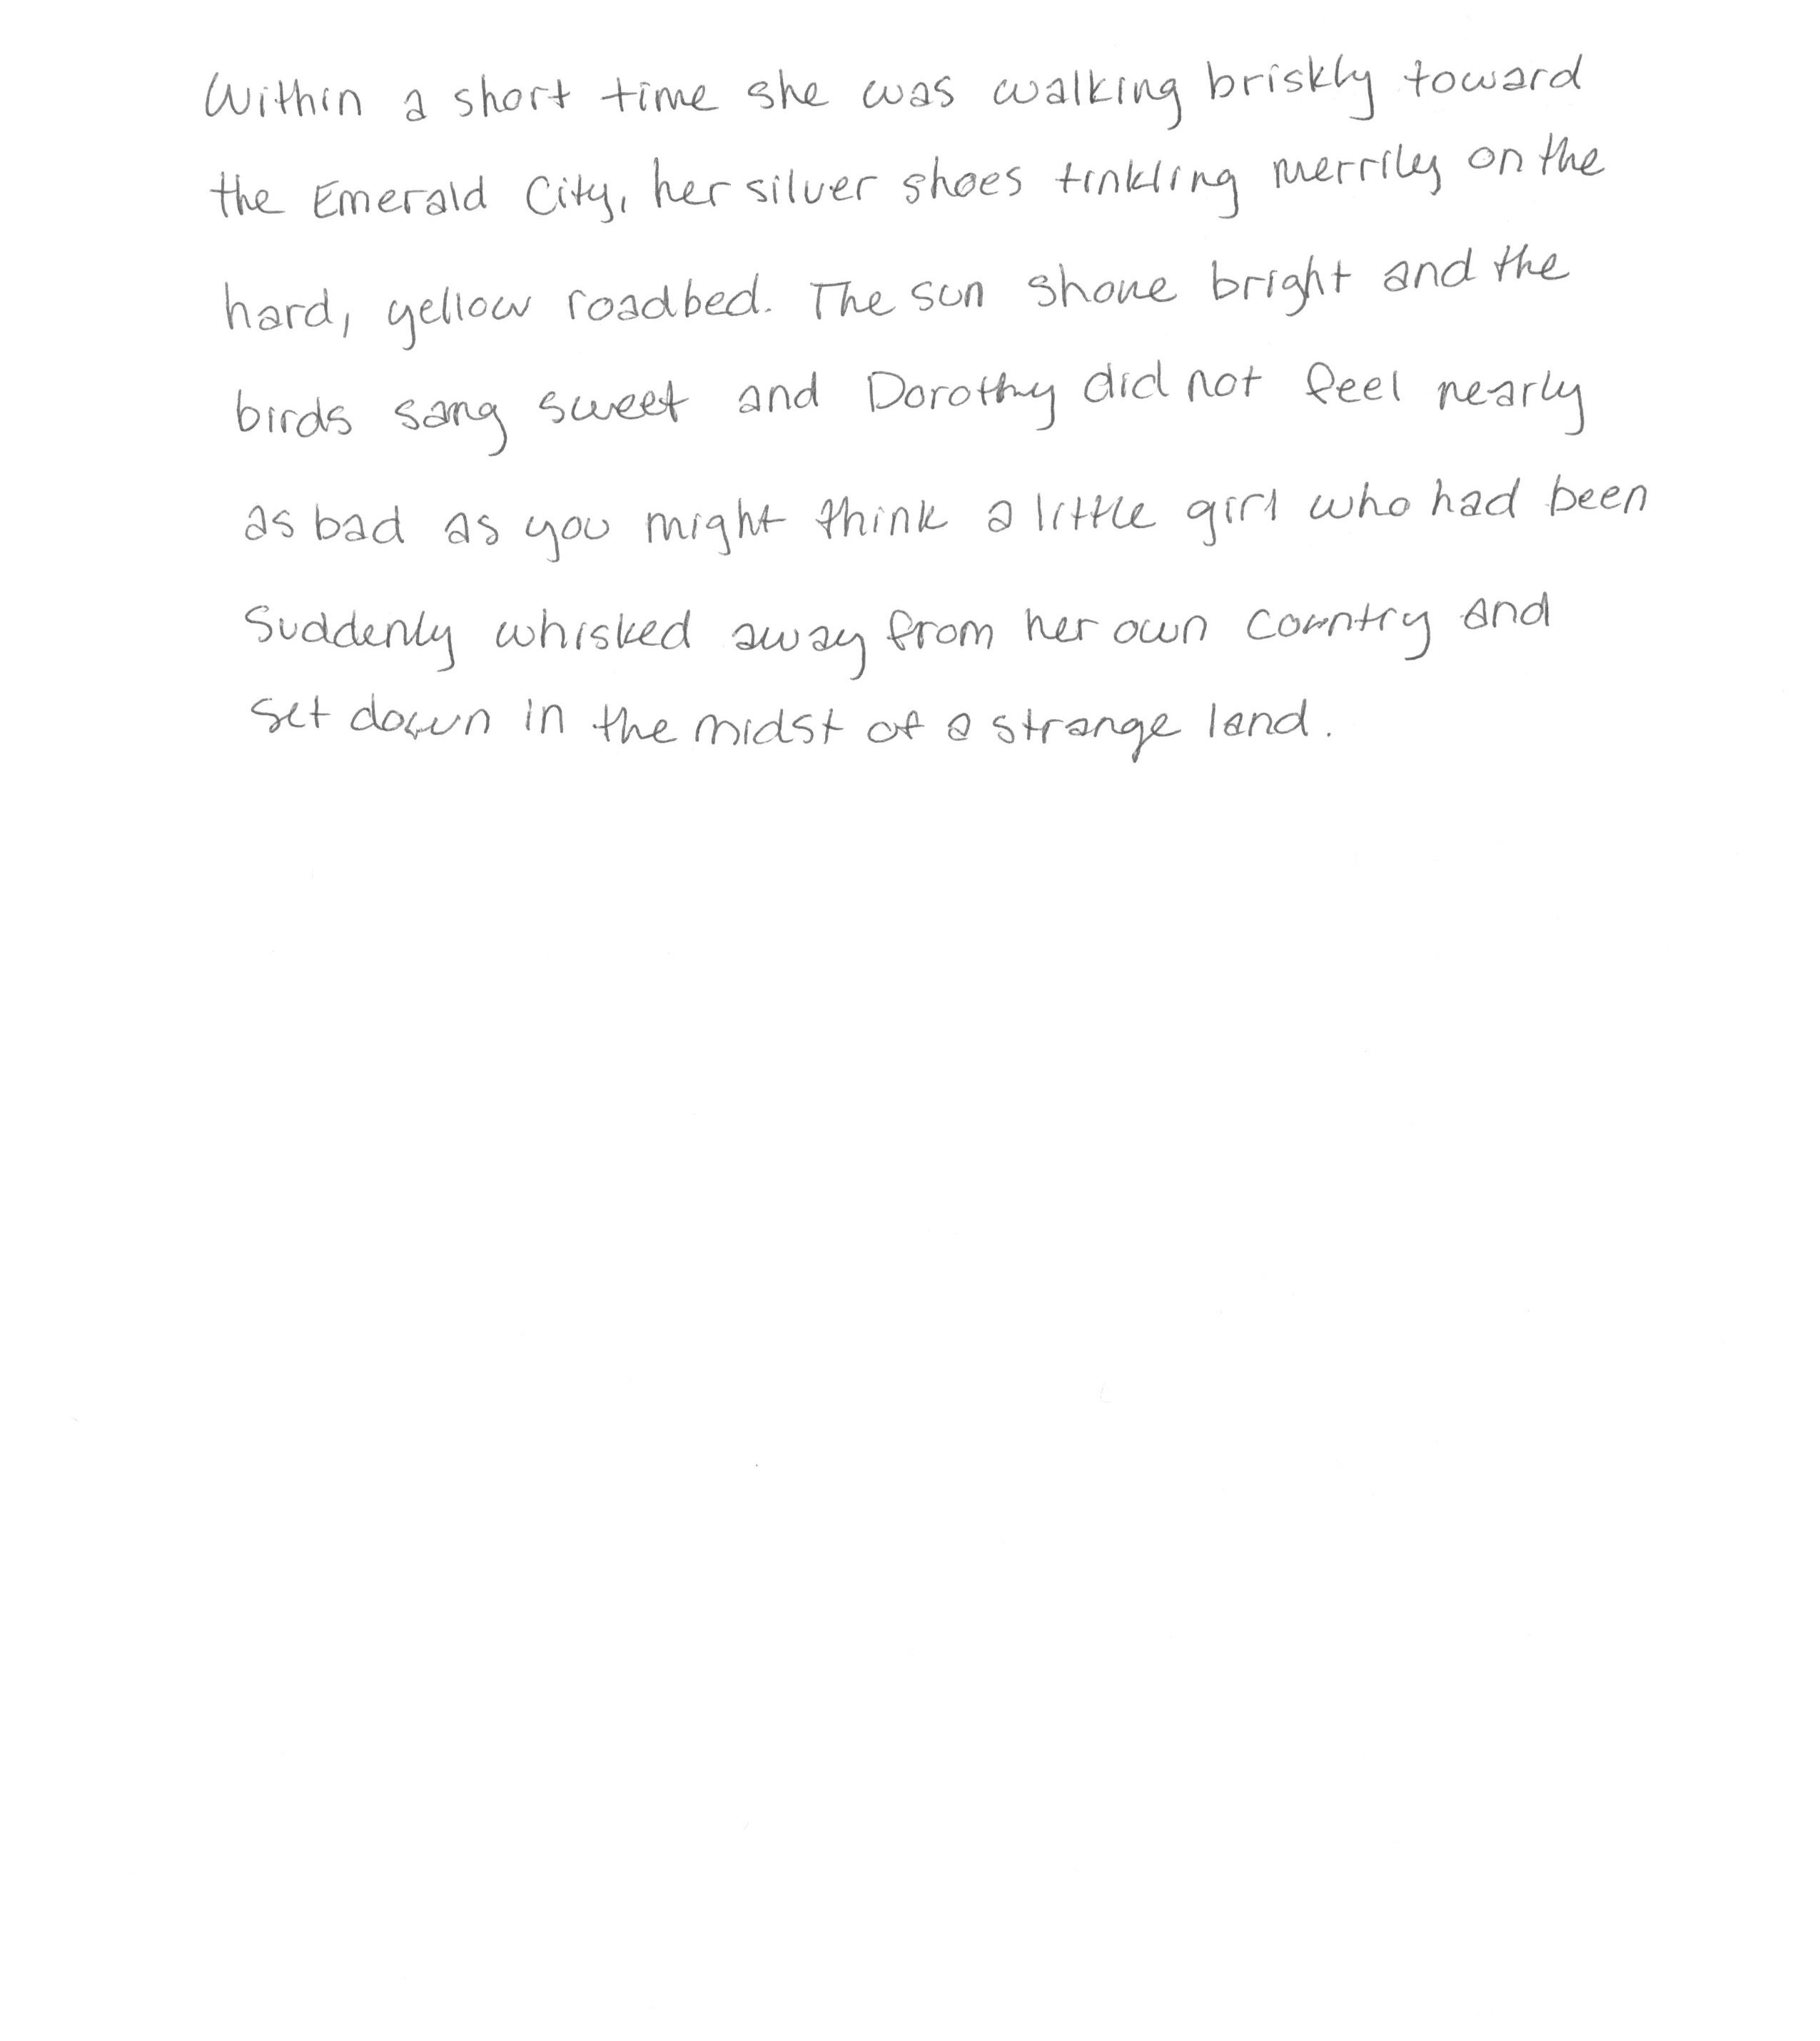 Within a short time she was walking briskly toward
the Emerald City, her silver shoes tinkling merrily on the
hard, yellow roadbed. The sun shone bright and the
birds sang sweet and Dorothy did not feel nearly
as bad as you might think a little girl who had been
suddenly whisked away from her own country and
set down in the midst of a strange land.